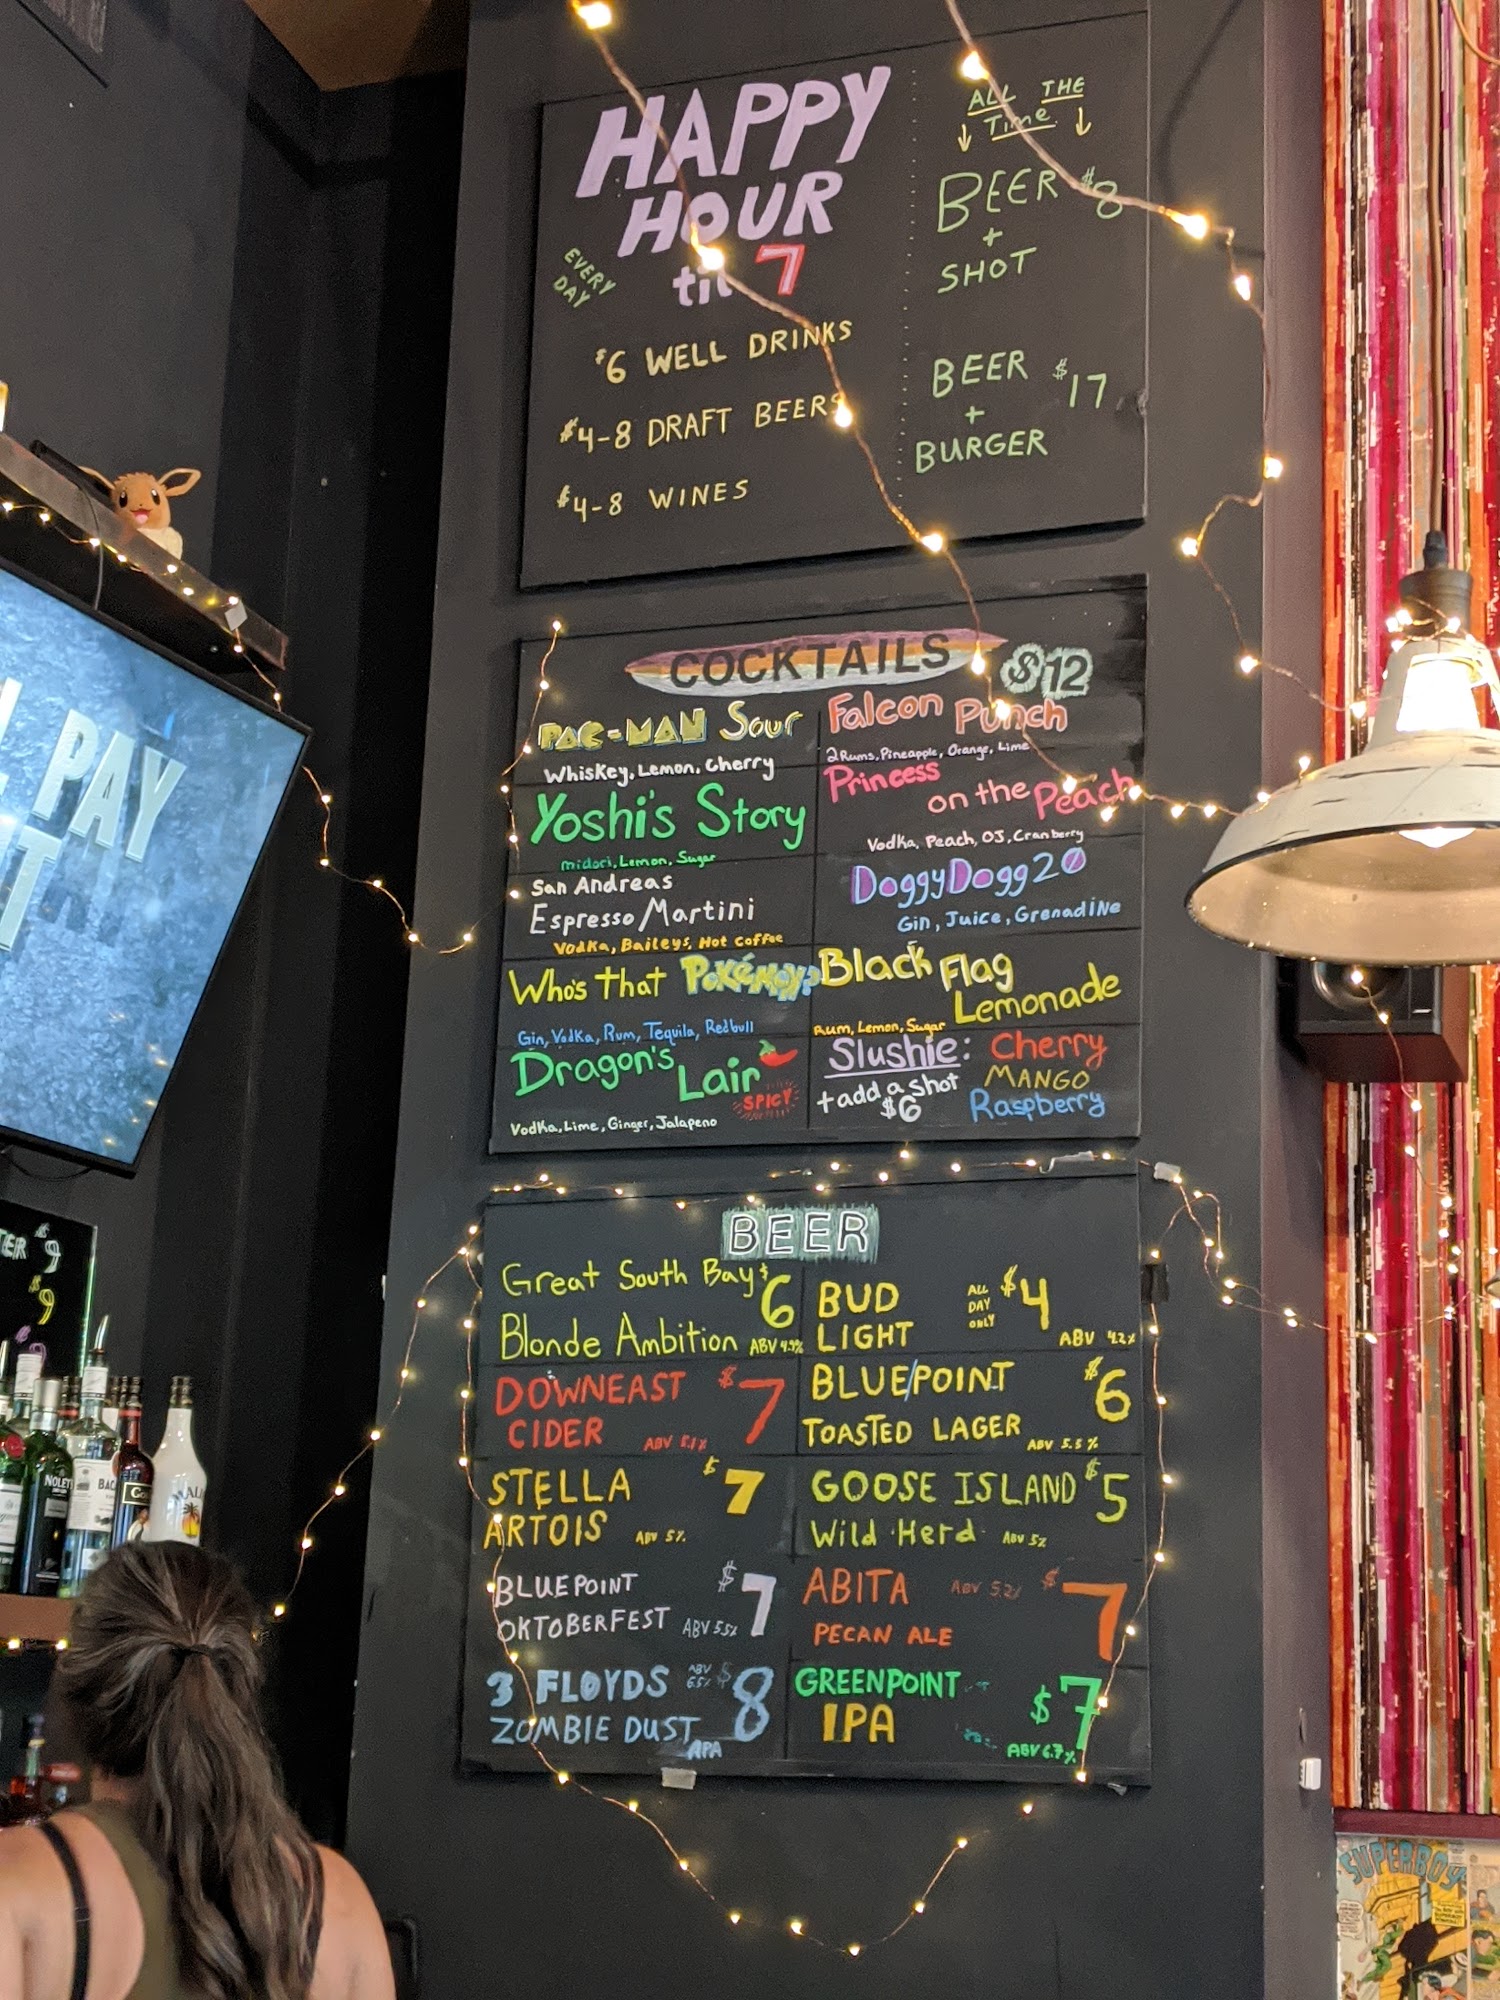 HAPPY
HOUR
til 7
EVERY
DAY
$6 WELL DRINKS
$4-8 DRAFT BEERS
$4-8 WINES
ALL THE
Time
BEER $8
+
SHOT
BEER $17
+
BURGER
COCKTAILS $12
PAC-MAN Sour
Whiskey, Lemon, Cherry
Yoshi's Story
midori, Lemon, Sugar
San Andreas
Espresso Martini
Vodka, Baileys, Hot Coffee
Who's that Pokémon?
Gin, Vodka, Rum, Tequila, Redbull
Dragon's
Lair
SPICY
Vodka, Lime, Ginger, Jalapeno
Falcon Punch
2 Rums, Pineapple, Orange, Lime
Princess
on the Peach
Vodka, Peach, OJ, Cranberry
DoggyDogg20
Gin, Juice, Grenadine
Black Flag
Lemonade
Rum, Lemon, Sugar
Slushie: Cherry
MANGO
Raspberry
+ add a shot
$6
BEER
Great South Bay $6
Blonde Ambition ABV 4.9%
DOWNEAST $7
CIDER ABV 5.1%
STELLA $7
ARTOIS ABV 5%
BLUEPOINT $7
OKTOBERFEST ABV 5.5%
3 FLOYDS ABV 6.5% $8
ZOMBIE DUST APA
BUD ALL DAY ONLY $4
LIGHT ABV 4.2%
BLUEPOINT $6
TOASTED LAGER ABV 5.5%
GOOSE ISLAND $5
Wild Herd ABV 5%
ABITA ABV 5.2% $7
PECAN ALE
GREENPOINT $7
IPA ABV 6.7%
PAY
TER $9
$9
NOLET
BAC
MALI
SUPERBOY